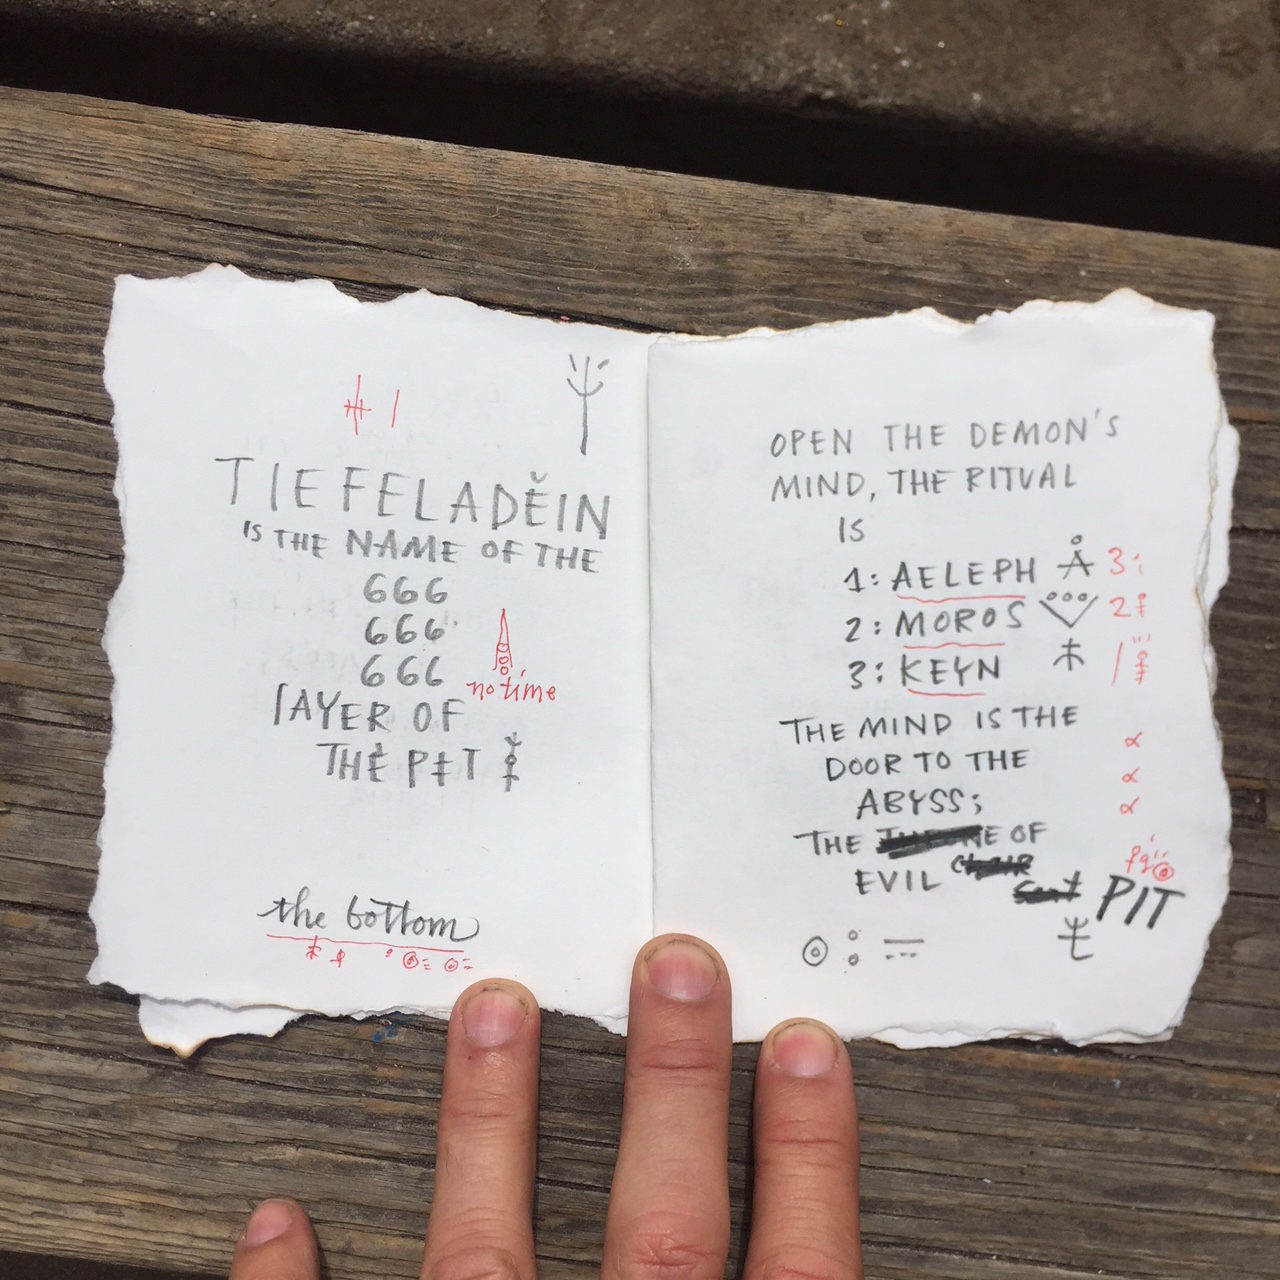 1
TIEFELADĔIN
IS THE NAME OF THE
666
666
666
no time
LAYER OF
THE PIT
the bottom
OPEN THE DEMON'S
MIND, THE RITUAL
IS
1: AELEPH Å 3:
2: MOROS 2
3: KEYN 1
THE MIND IS THE
DOOR TO THE
ABYSS;
α
α
α
THE OF
EVIL PIT